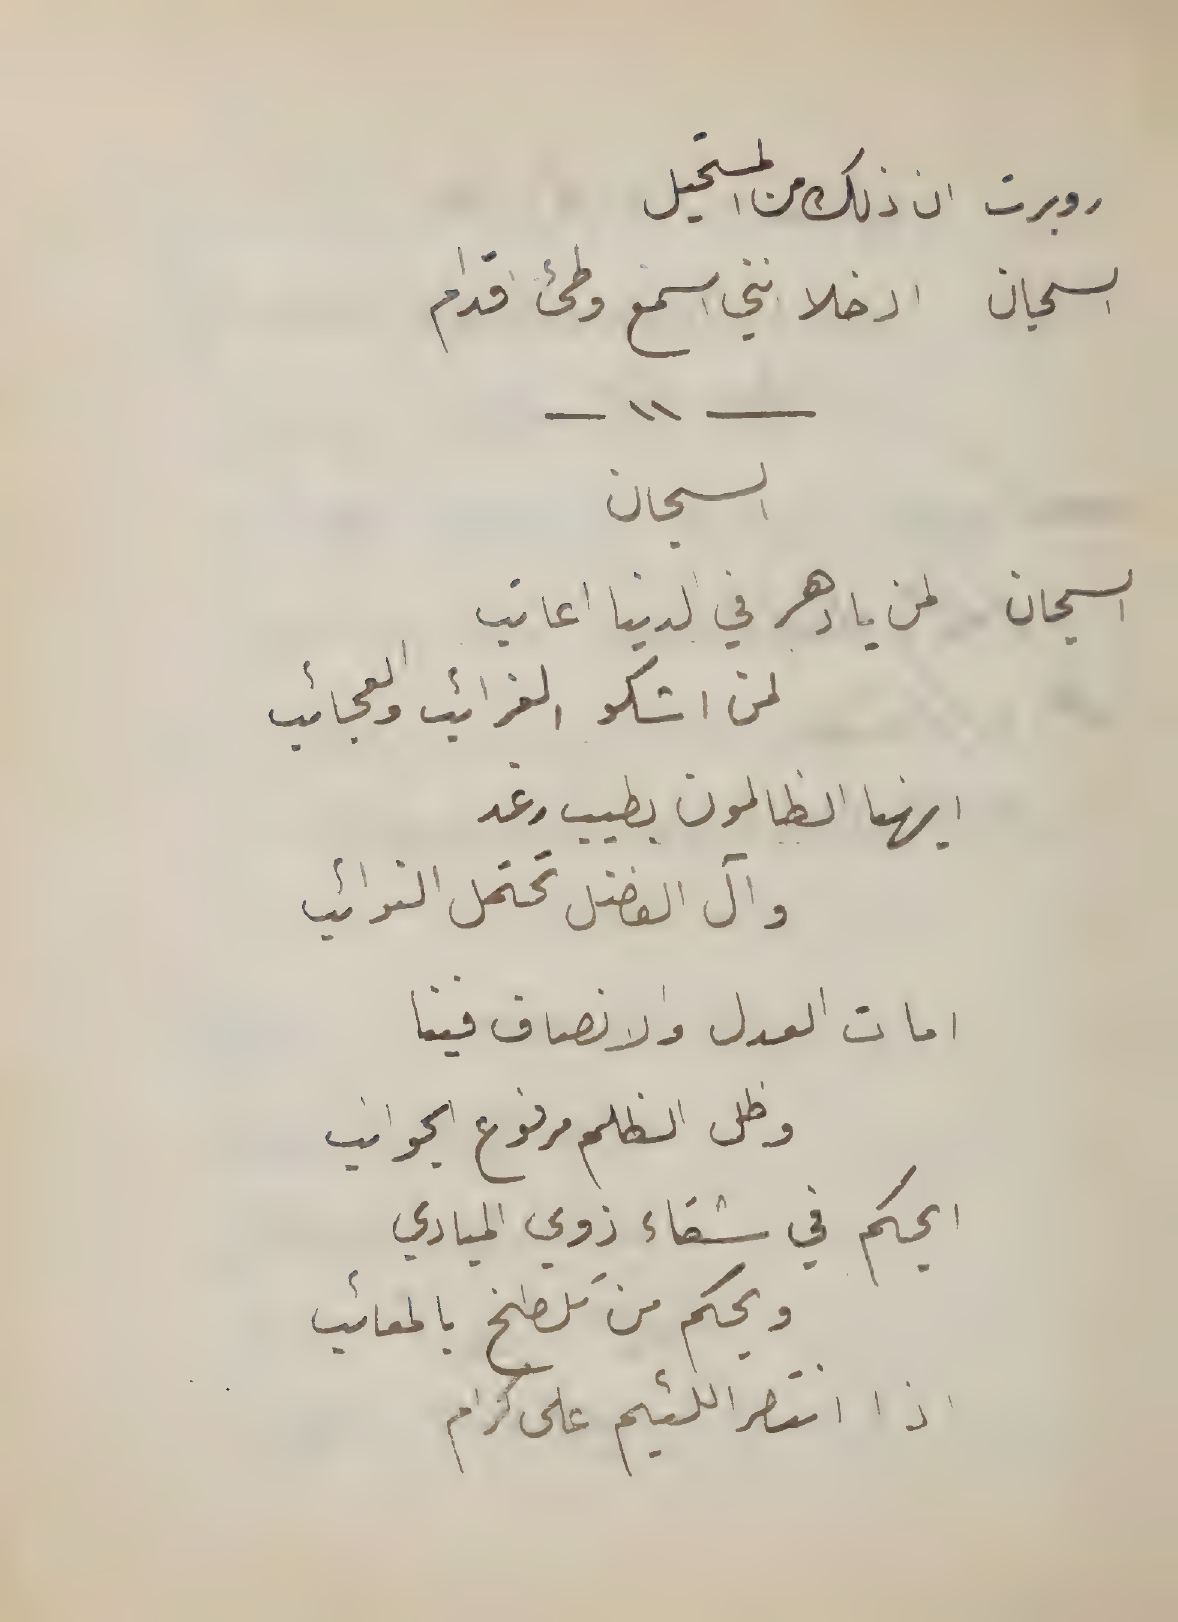 روبرت ان ذلك من المستحيل
السجان ادخلا انني اسمع وطئ اقدام
السجان
السجان لمن يا دهر في الدنيا اعاتب
لمن اشكو الغرائب والعجائب
ايهنا الظالمون بطيب رغد
وآل الفضل تحتمل النوائب
امات العدل والانصاف فينا
وظل الظلم مرفوع الجوانب
ايحكم في شقاء ذوي المبادي
ويحكم من تلطخ بالمعائب
اذا انتصر اللئيم على كرام